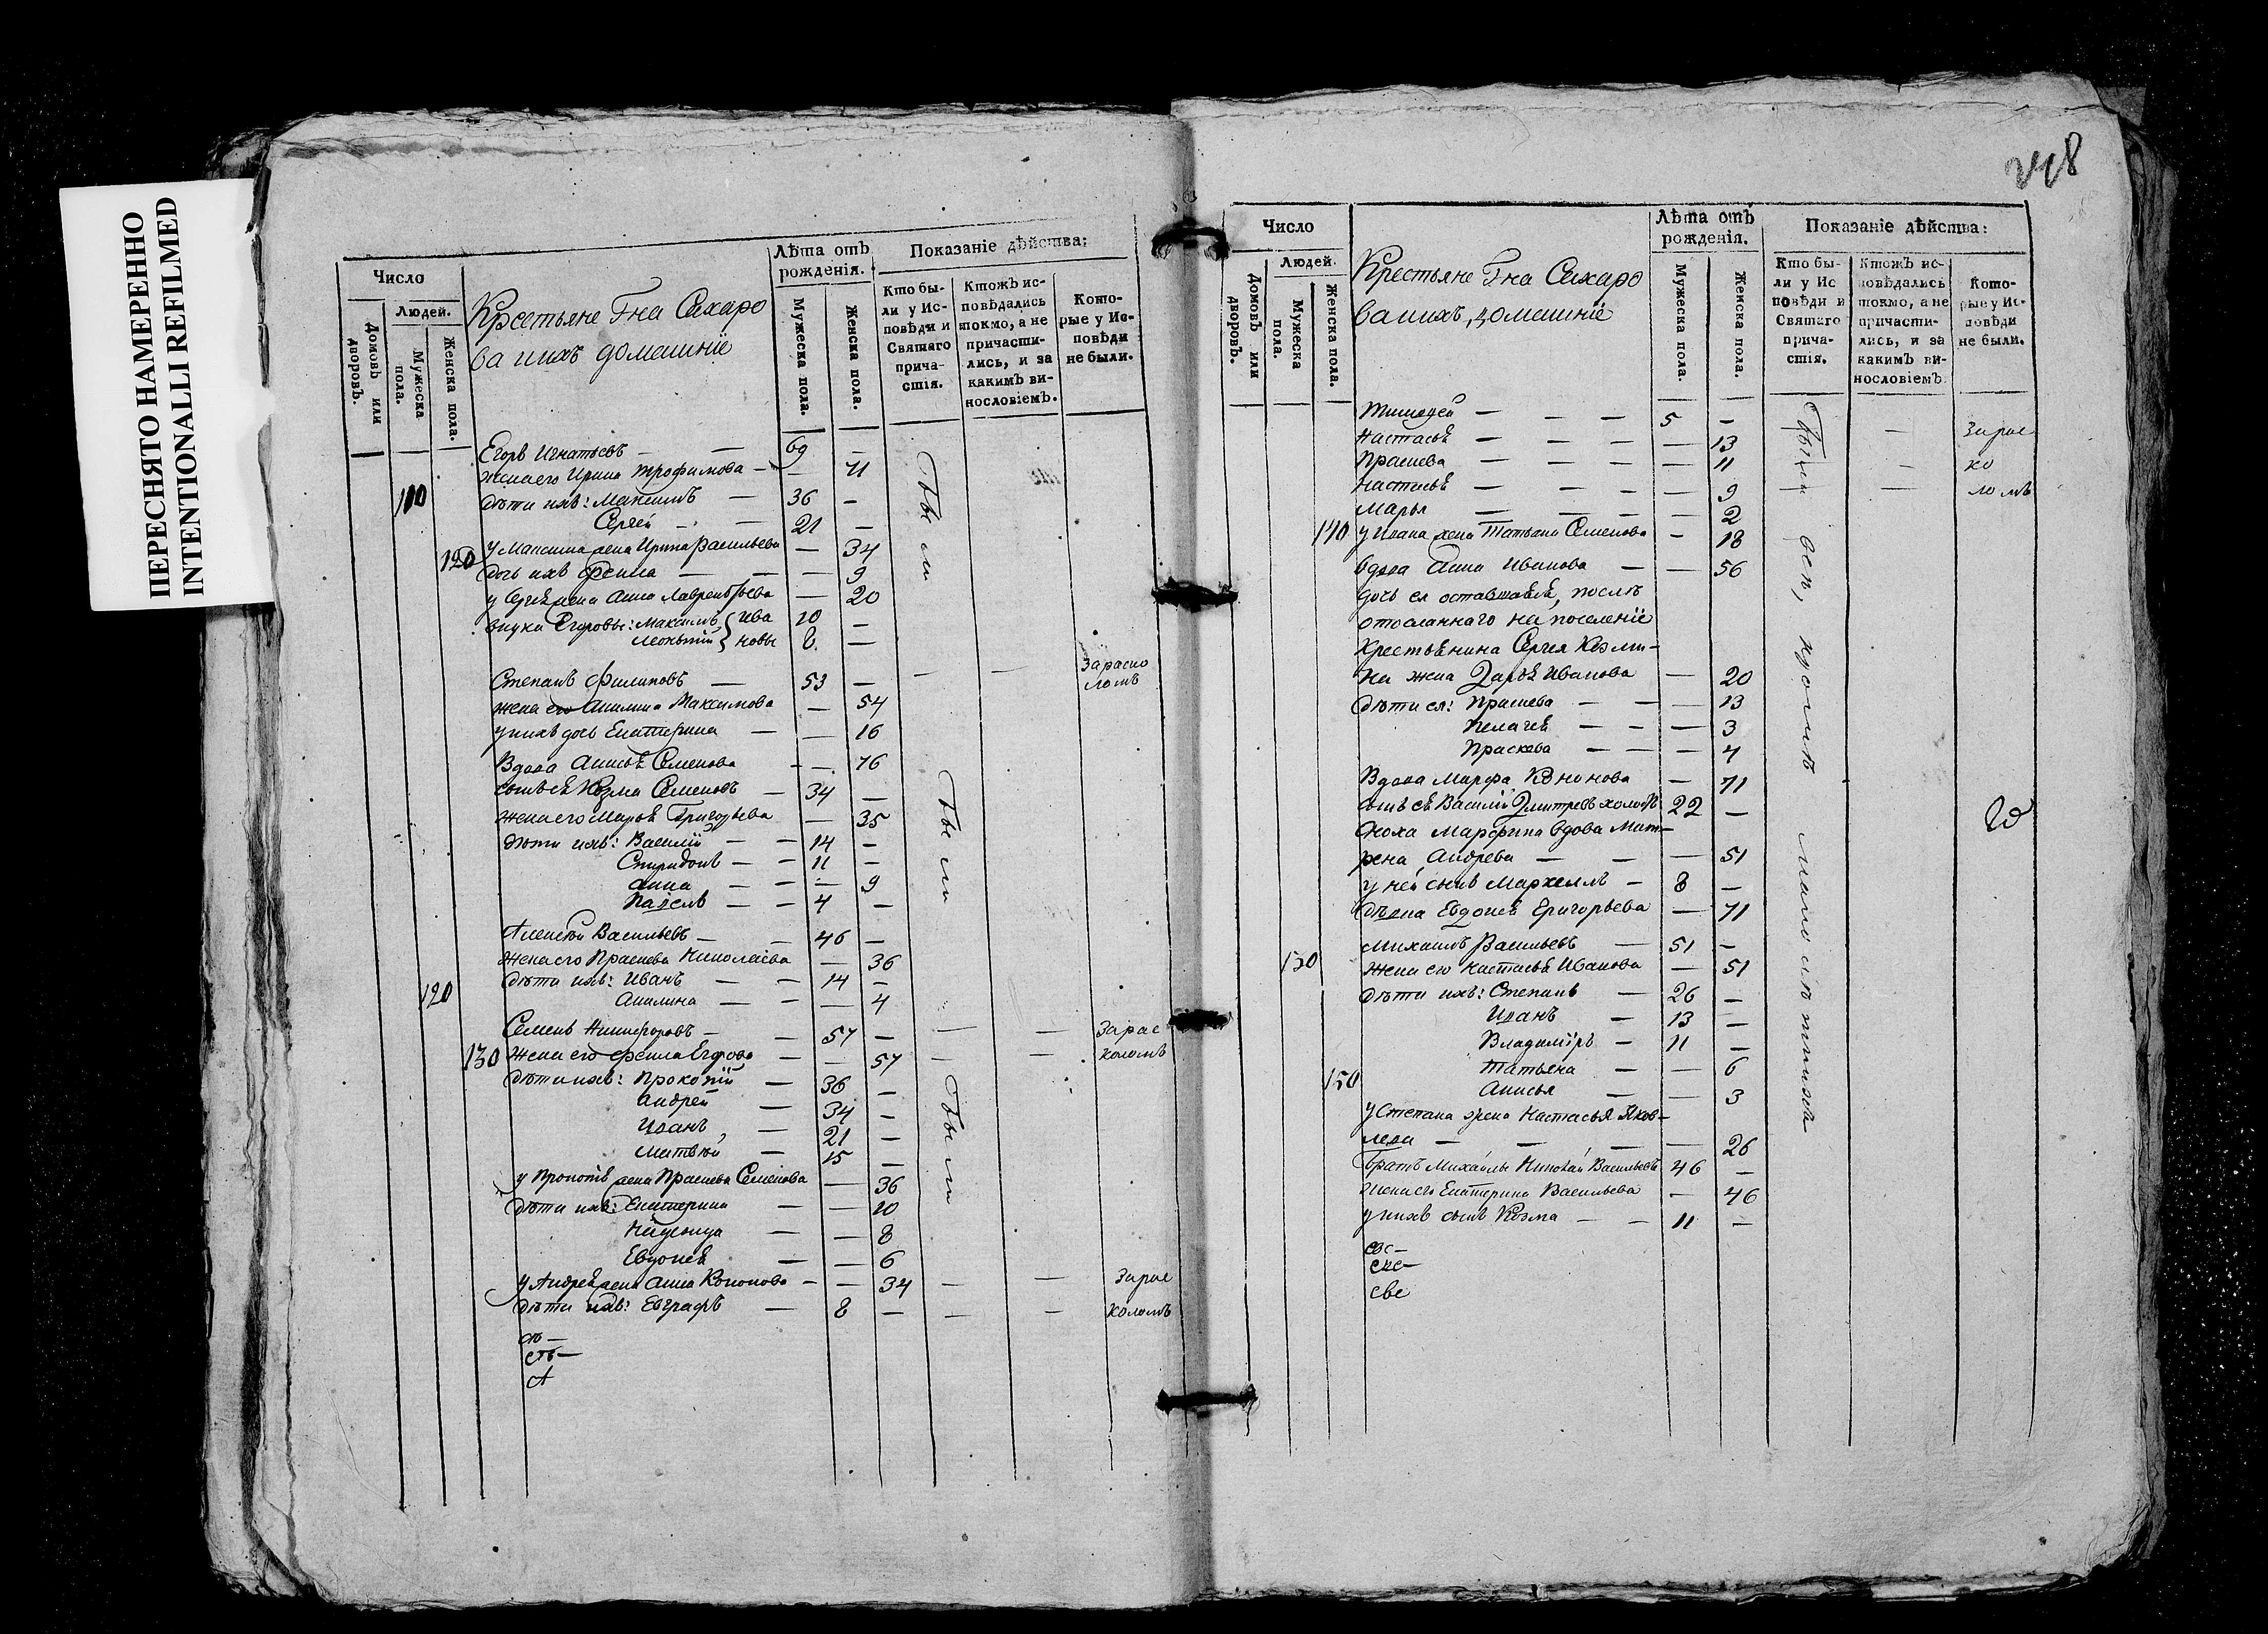 ПЕРЕСНЯТО НАМЕРЕННО
INTENTIONALLI REFILMED
Число
Людей.
Домовъ или дворовъ.
Мужеска пола.
Женска пола.
Крестьяне Гна Сахаро
ва и ихъ домашніе
Лѣта отъ рожденія.
Мужеска пола.
Женска пола.
Показаніе дѣйства:
Кто бы-
ли у Ис-
повѣди и
Святаго
прича-
стія.
Ктожъ ис-
повѣдались
токмо, а не
причасти-
лись, и за
какимъ ви-
нословіемъ.
Кото-
рые у Ис-
повѣди
не были.
Егоръ Игнатьевъ — 69 —
жена его Ирина Трофимова — — 71
110 дѣти ихъ: Максимъ — 36 —
Сергей — 21 —
120 у Максима жена Ирина Васильева — 34
дочь ихъ — 9
у Сергея жена Анна — 20
внуки Егоровы: Максимъ Ива 10 —
Леонтий новы 8 —
Степанъ Филиповъ — 53 — — — Зараско
ломъ
жена его Акилина Максимова — 54
у нихъ дочь Екатерина — — 16
Вдова Анисья Семенова — — 76
сынъ ея Козма Семеновъ — 34 —
жена его Марья Григорьева — 35
дѣти ихъ: Василій — — 14 —
Спиридонъ — — 11 —
Анна — — — 9
Павелъ — — 4 —
Алексей Васильевъ — — 46 —
жена его Праскева Николаева — 36
дѣти ихъ: Иванъ — — 14 —
120 Акилина — — — 4
Семенъ Никифоровъ — 57 — — — Зарас
130 жена его Егорова — — 57 — — коломъ
дѣти ихъ: Прокопій — 36 —
Андрей — 34 —
Иванъ — 21 —
Матвей — 15 —
у Прокопія жена Праскева Семенова — 36
дѣти ихъ: Екатерина — — 10
— — 8
Евдокея — — 6
У Андрея жена Анна Кононова — — 34 — — Зарас
дѣти ихъ: Евграфъ — 8 — — — коломъ
Были
Были
Были
248
Число
Людей.
Домовъ или дворовъ.
Мужеска пола.
Женска пола.
Крестьяне Гна Сахаро
ва и ихъ домашніе
Лѣта отъ рожденія.
Мужеска пола.
Женска пола.
Показаніе дѣйства:
Кто бы-
ли у Ис
повѣди и
Святаго
прича-
стія.
Ктожъ ис-
повѣдались
токмо, а не
причасти-
лись, и за
какимъ ви-
нословіемъ.
Кото-
рые у Ис-
повѣди
не были.
Тимофей — — — 5 — — Зарас
Настасья — — — — 13
Праскева — — — — 11 — ко
Настасья — — — — 9 — — ломъ
Марья — — — — 2
140 у Ивана жена Татьяна Семенова — 18
Вдова Анна Иванова — — 56
дочь ея оставшаяся, послѣ
отосланнаго на поселеніе
крестьянина Сергея Козми-
на жена Дарья Иванова — 20
дѣти ея: Праскева — — — 13
Пелагея — — — 3
Праскева — — — 4
Вдова Марфа Кононова — 71
сынъ ея Василій Дмитревъ холостъ 22 —
сноха Марфина вдова Мат-
рена Андрева — — — 51
у ней сынъ Маркеллъ — 8 —
Евдокея Григорьева — 71
Михаилъ Васильевъ — 51 —
130 жена его Настасья Иванова — 51
дѣти ихъ: Степанъ — 26 —
Иванъ — 13 —
Владиміръ — 11 —
Татьяна — — 6
150 Анисья — — 3
у Степана жена Настасья Яков-
лева — — — — 26
Братъ Михайлы Николай Васильевъ 46 —
жена его Екатерина Васильева — 46
у нихъ сынъ Козма — — 11 —
Были